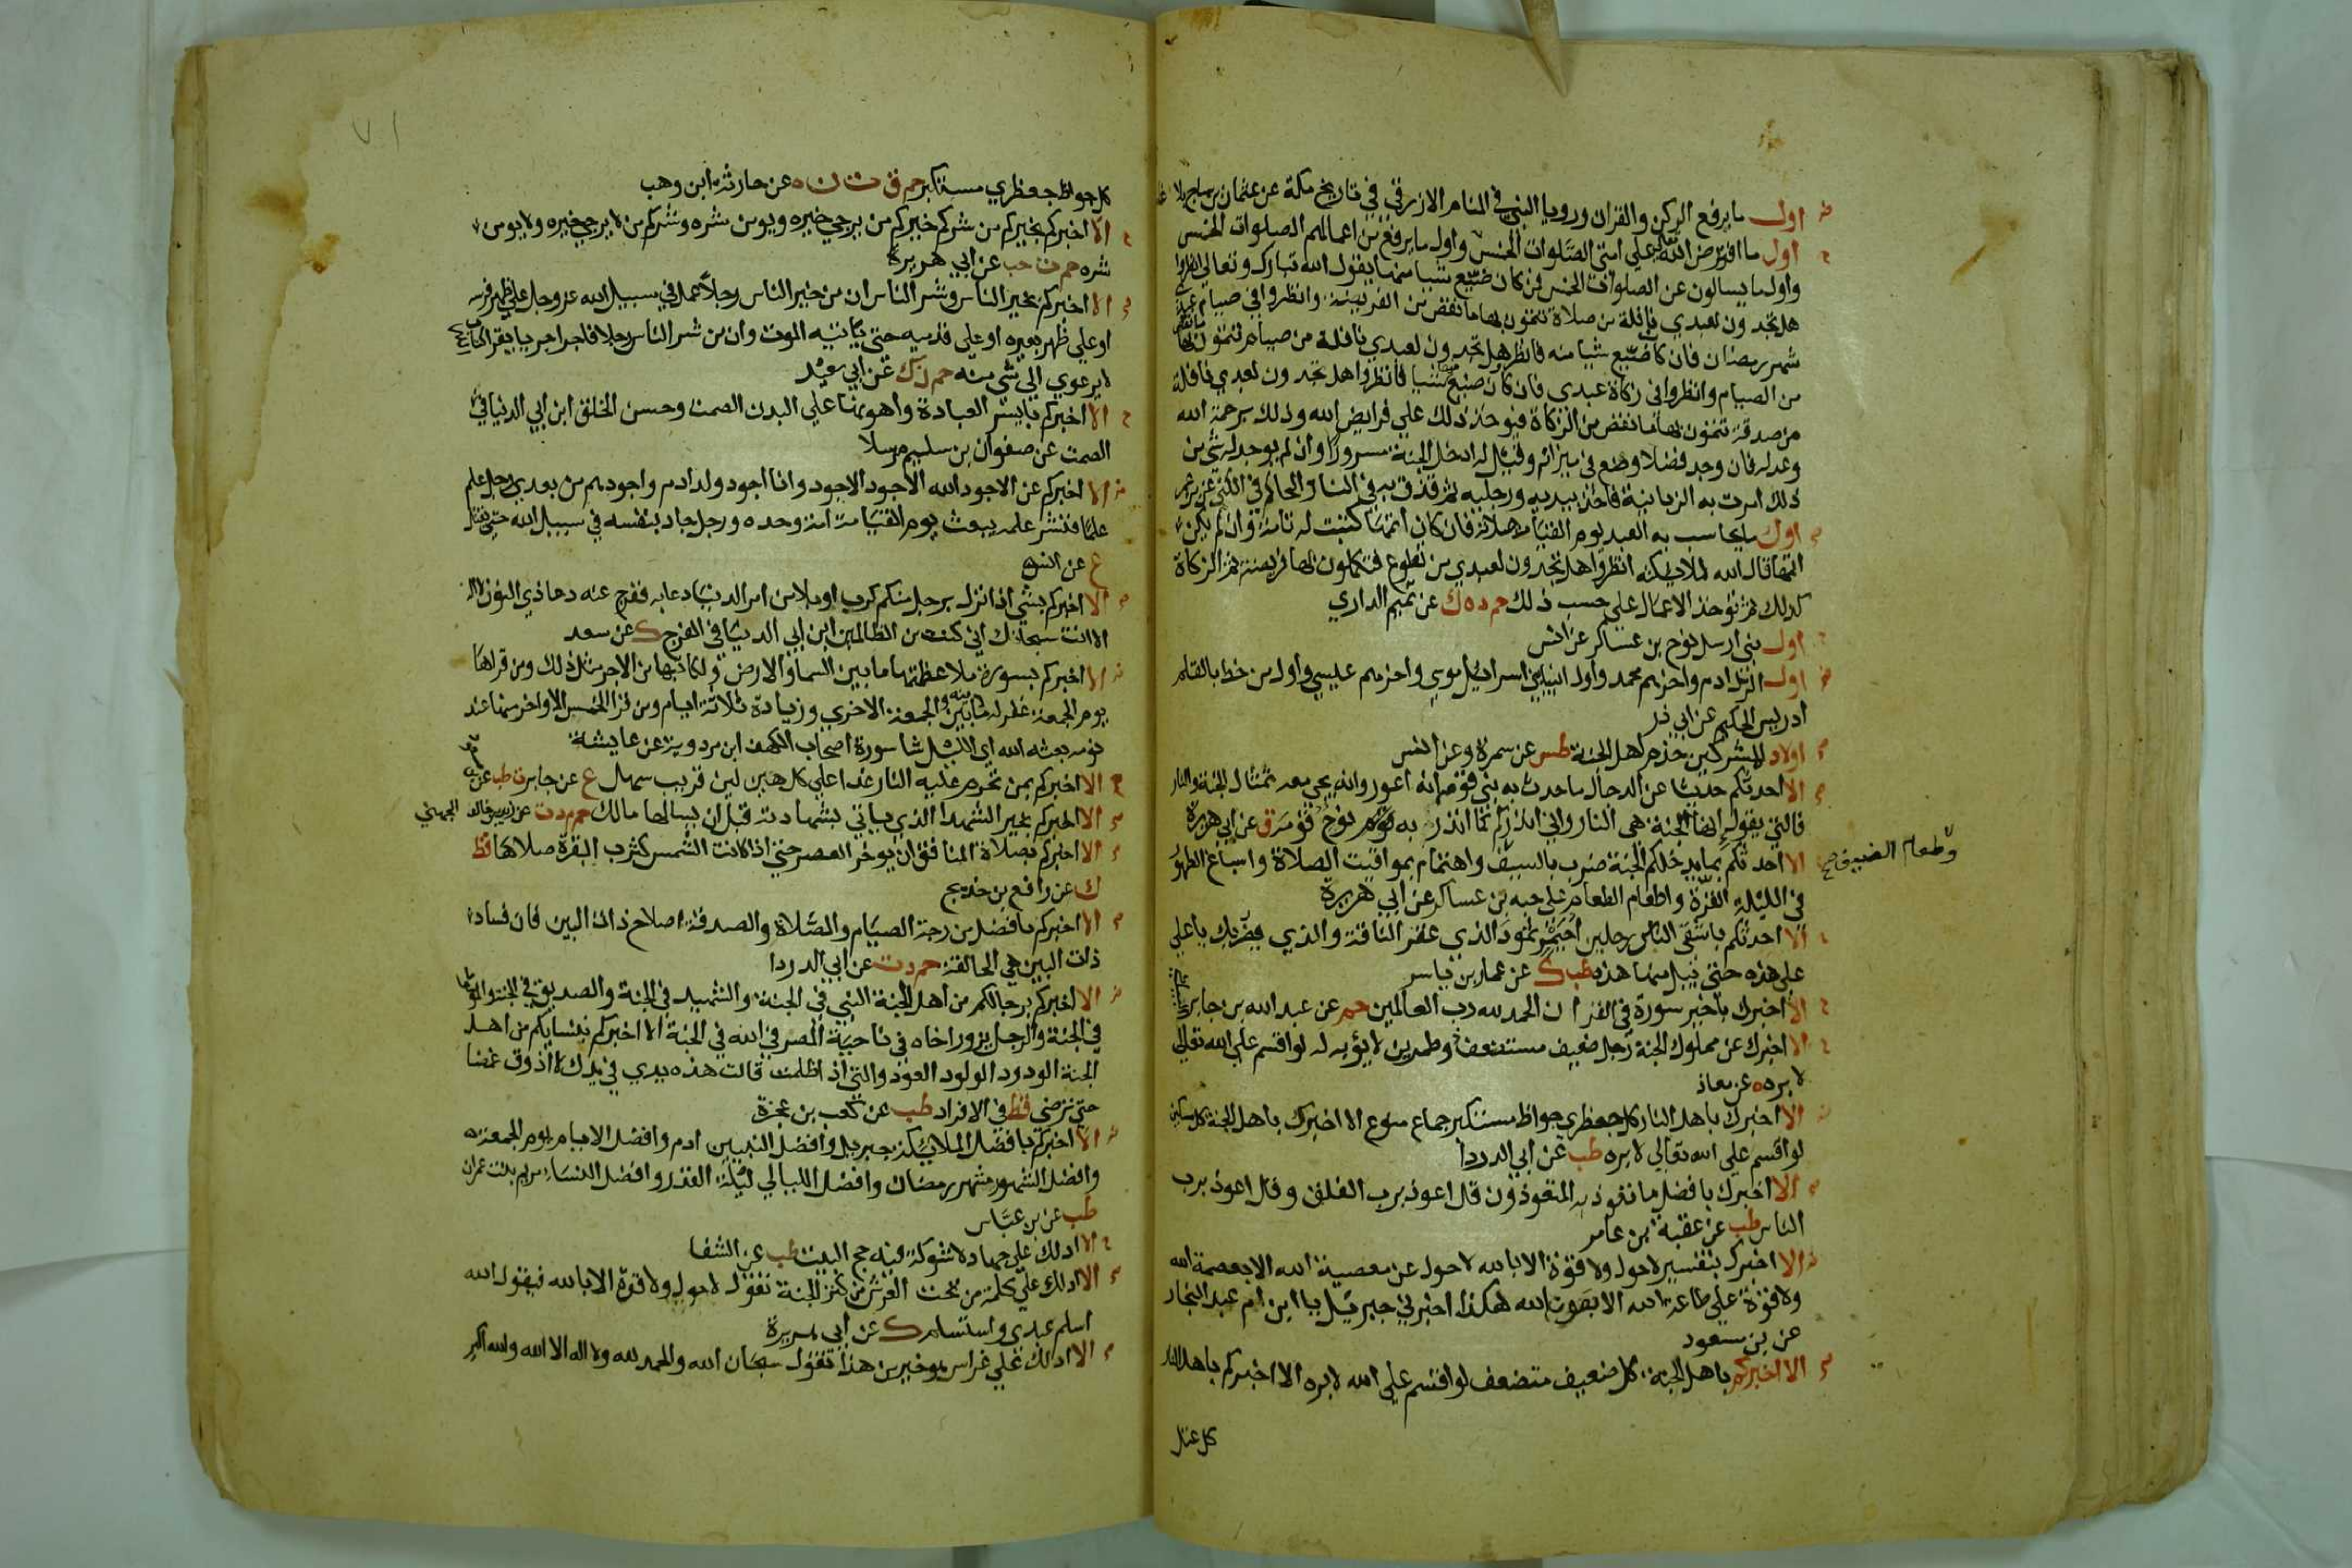 اول ما يرفع الركن والقران ورويا النبي في المنام الازرقي في تاريخ مكة عن عثمان بن ساج بلاغا
اول ما افترض الله تعالى علي امتي الصلوات الخمس واول ما يرفع من اعمالهم الصلوات الخمس
واول ما يسالون عن الصلوات الخمس فمن كان ضيع شيا منها يقول الله تبارك وتعالي انظروا
هل تجدون لعبدي نافلة من صلاة تتمون بها ما نقص من الفريضة وانظروا في صيام عبدي
شهر رمضان فان كان ضيع شيا منه فانظروا هل تجدون لعبدي نافلة من صيام تتمون بها ما نقص
من الصيام وانظروا في زكاة عبدي فان كان ضيع منها شيا فانظروا هل تجدون لعبدي نافلة
من صدقة تتمون بها ما نقص من الزكاة فيوخذ ذلك علي فرايض الله وذلك برحمة الله
وعدله فان وجد فضلا وضع في ميزانه وقيل له ادخل الجنة مسرورا وان لم يوجد له شي من
ذلك امرت به الزبانية فاخذ بيديه ورجليه ثم قذف به في النار الحاكم في الكني عن بن عمر
اول ما يحاسب به العبد يوم القيامة صلاته فان كان اتمها كتبت له تامة وان لم يكن
اتمها قال الله لملايكته انظروا هل تجدون لعبدي من تطوع فتكملون بها فريضته ثم الزكاة
كذلك ثم توخذ الاعمال علي حسب ذلك حم د ه ك عن تميم الداري
اول نبي ارسل نوح بن عساكر عن انس
اول الرسل ادم واخرهم محمد واول انبيا بني اسرائيل موسي واخرهم عيسي واول من خط بالقلم
ادريس الحكيم عن ابي ذر
اولاد المشركين خدم اهل الجنة طس عن سمرة وعن انس
الا احدثكم حديثا عن الدجال ما حدث به نبي قومه انه اعور وانه يجي معه تمثال الجنة والنار
فالتي يقول انها الجنة هي النار واني انذركم كما انذر به نوح قومه ق عن ابي هريرة
الا احدثكم بما يدخلكم الجنة ضرب بالسيف واهتمام بمواقيت الصلاة واسباغ الطهور
وطعام الضيف صح
في الليلة القرة واطعام الطعام علي حبه بن عساكر عن ابي هريرة
الا احدثكم باشقي الناس رجلين احيمر ثمود الذي عقر الناقة والذي يضربك يا علي
علي هذه حتي يبل منها هذه طب ك عن عمار بن ياسر
الا اخبرك باخير سورة في القران الحمد لله رب العالمين حم عن عبد الله بن جابر
الا اخبرك عن مملوك الجنة رجل ضعيف مستضعف ذو طمرين لا يؤبه له لو اقسم علي الله تعالي
لابره ه عن معاذ
الا اخبرك باهل النار كل جعظري جواظ مستكبر جماع منوع الا اخبرك باهل الجنة كل مسكين
لو اقسم علي الله تعالي لابره طب عن ابي الدردا
الا اخبرك بافضل ما تعوذ به المتعوذون قل اعوذ برب الفلق وقل اعوذ برب
الناس طب عن عقبة بن عامر
الا اخبرك بتفسير لا حول ولا قوة الا بالله لا حول عن معصية الله الا بعصمة الله
ولا قوة علي طاعة الله الا بعون الله هكذا اخبرني جبريل يا ابن ام عبد النجار
عن بن مسعود
الا اخبركم باهل الجنة كل ضعيف متضعف لو اقسم علي الله لابره الا اخبركم باهل النار
كل عتل
٧١
كل جواظ جعظري مستكبر حم ق ت ن ه عن حارثة ابن وهب
الا اخبركم بخيركم من شركم خيركم من يرجي خيره ويومن شره وشركم من لا يرجي خيره ولا يومن
شره حم ت حب عن ابي هريرة
الا اخبركم بخير الناس وشر الناس ان من خير الناس رجلا عمل في سبيل الله عز وجل علي ظهر فرسه
او علي ظهر بعيره او علي قدميه حتي ياتيه الموت وان من شر الناس رجلا فاجرا جريا يقرا كتاب الله
لا يرعوي الي شي منه حم ن ك عن ابي سعيد
الا اخبركم بايسر العبادة واهونها علي البدن الصمت وحسن الخلق ابن ابي الدنيا في
الصمت عن صفوان بن سليم مرسلا
الا اخبركم عن الاجود الله الاجود الاجود وانا اجود ولد ادم واجودهم من بعدي رجل علم
علما فنشر علمه يبعث يوم القيامة امة وحده ورجل جاد بنفسه في سبيل الله حتي يقتل
ع عن انس
الا اخبركم بشي اذا نزل برجل منكم كرب او بلا من امر الدنيا دعا به ففرج عنه دعا ذي النون لا اله
الا انت سبحانك اني كنت من الظالمين ابن ابي الدنيا في الفرج ك عن سعد
الا اخبركم بسورة ملا عظمتها ما بين السما والارض ولكاتبها من الاجر مثل ذلك ومن قراها
يوم الجمعة غفر له ما بينه وبين الجمعة الاخري وزيادة ثلاثة ايام ومن قرا الخمس الاواخر منها عند
نومه بعثه الله اي الليل شا سورة اصحاب الكهف ابن مردوية عن عايشة
الا اخبركم بمن تحرم عليه النار غدا علي كل هين لين قريب سهل ع عن جابر ت طب عن
الا اخبركم بخير الشهدا الذي ياتي بشهادته قبل ان يسالها مالك حم م د ت عن زيد بن خالد الجهني
الا اخبركم بصلاة المنافق ان يوخر العصر حتي اذا كانت الشمس كثرب البقرة صلاها قط
ك عن رافع بن خديج
الا اخبركم بافضل من درجة الصيام والصلاة والصدقة اصلاح ذات البين فان فساد
ذات البين هي الحالقة حم د ت عن ابي الدردا
الا اخبركم برجالكم من اهل الجنة النبي في الجنة والشهيد في الجنة والصديق في الجنة والمولود
في الجنة والرجل يزور اخاه في ناحية المصر في الله في الجنة الا اخبركم بنسايكم من اهل
الجنة الودود الولود العؤد والتي اذا ظلمت قالت هذه يدي في يدك لا اذوق غمضا
حتي ترضي قط في الافراد طب عن كعب بن عجرة
الا اخبركم بافضل الملائكة جبريل وافضل النبيين ادم وافضل الايام يوم الجمعة
وافضل الشهور شهر رمضان وافضل الليالي ليلة القدر وافضل النساء مريم بنت عمران
طب عن بن عباس
الا ادلك علي جهاد لا شوكة فيه حج البيت طب عن الشفا
الا ادلك علي كلمة من تحت العرش من كنز الجنة تقول لا حول ولا قوة الا بالله فيقول الله
اسلم عبدي واستسلم ك عن ابي هريرة
الا ادلك علي غراس هو خير من هذا تقول سبحان الله والحمد لله ولا اله الا الله والله اكبر